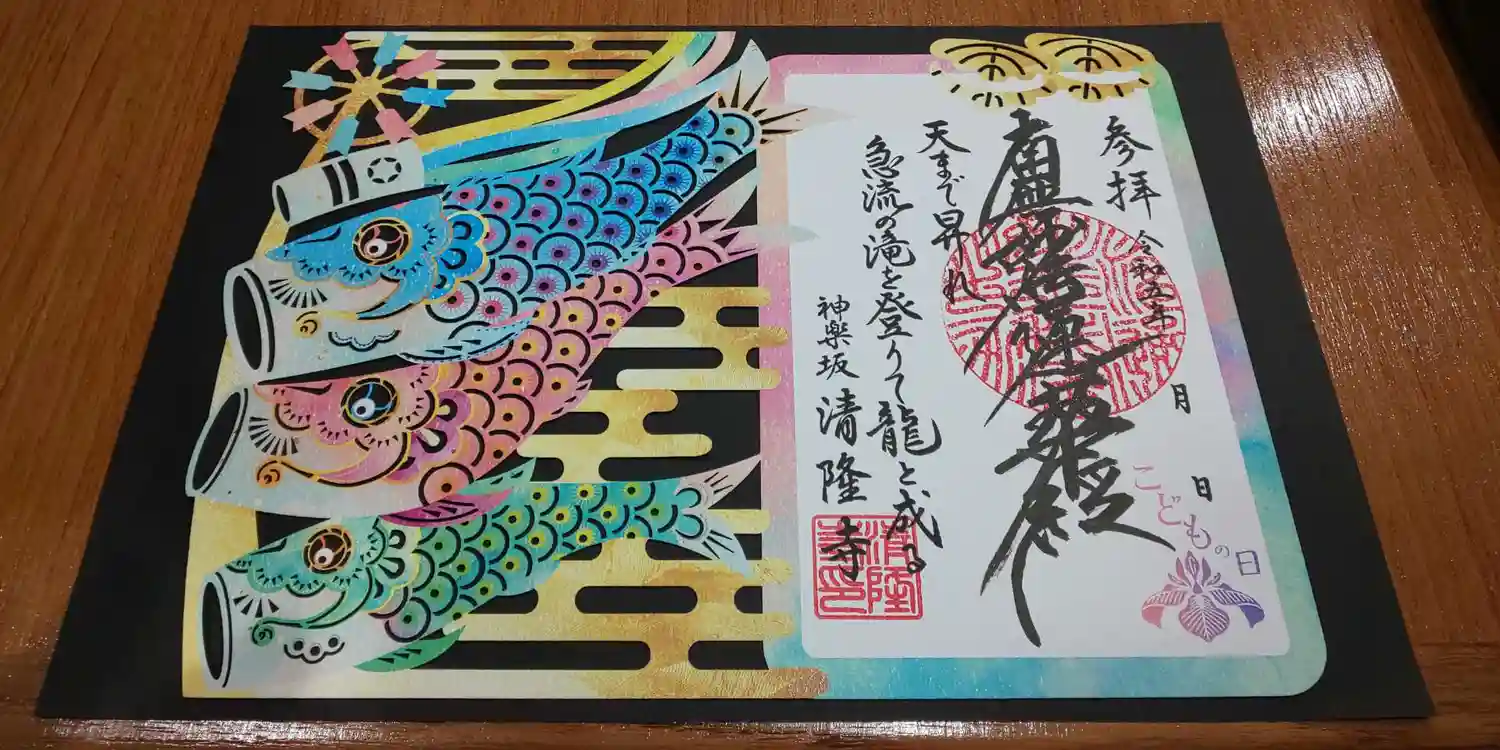 参拝 令和五年 月 日
こどもの日
南無妙法蓮華経
天まで昇れ
急流の滝を登りて龍と成る
神楽坂 清隆寺
清隆寺印